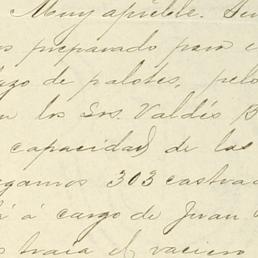 Muy apreble. Su
os preparado para e
azo de palotes, pelo
n los Srs. Valdés B
capacidad de las
egamos 303 castrad
á cargo de Juan
traia el vaciero